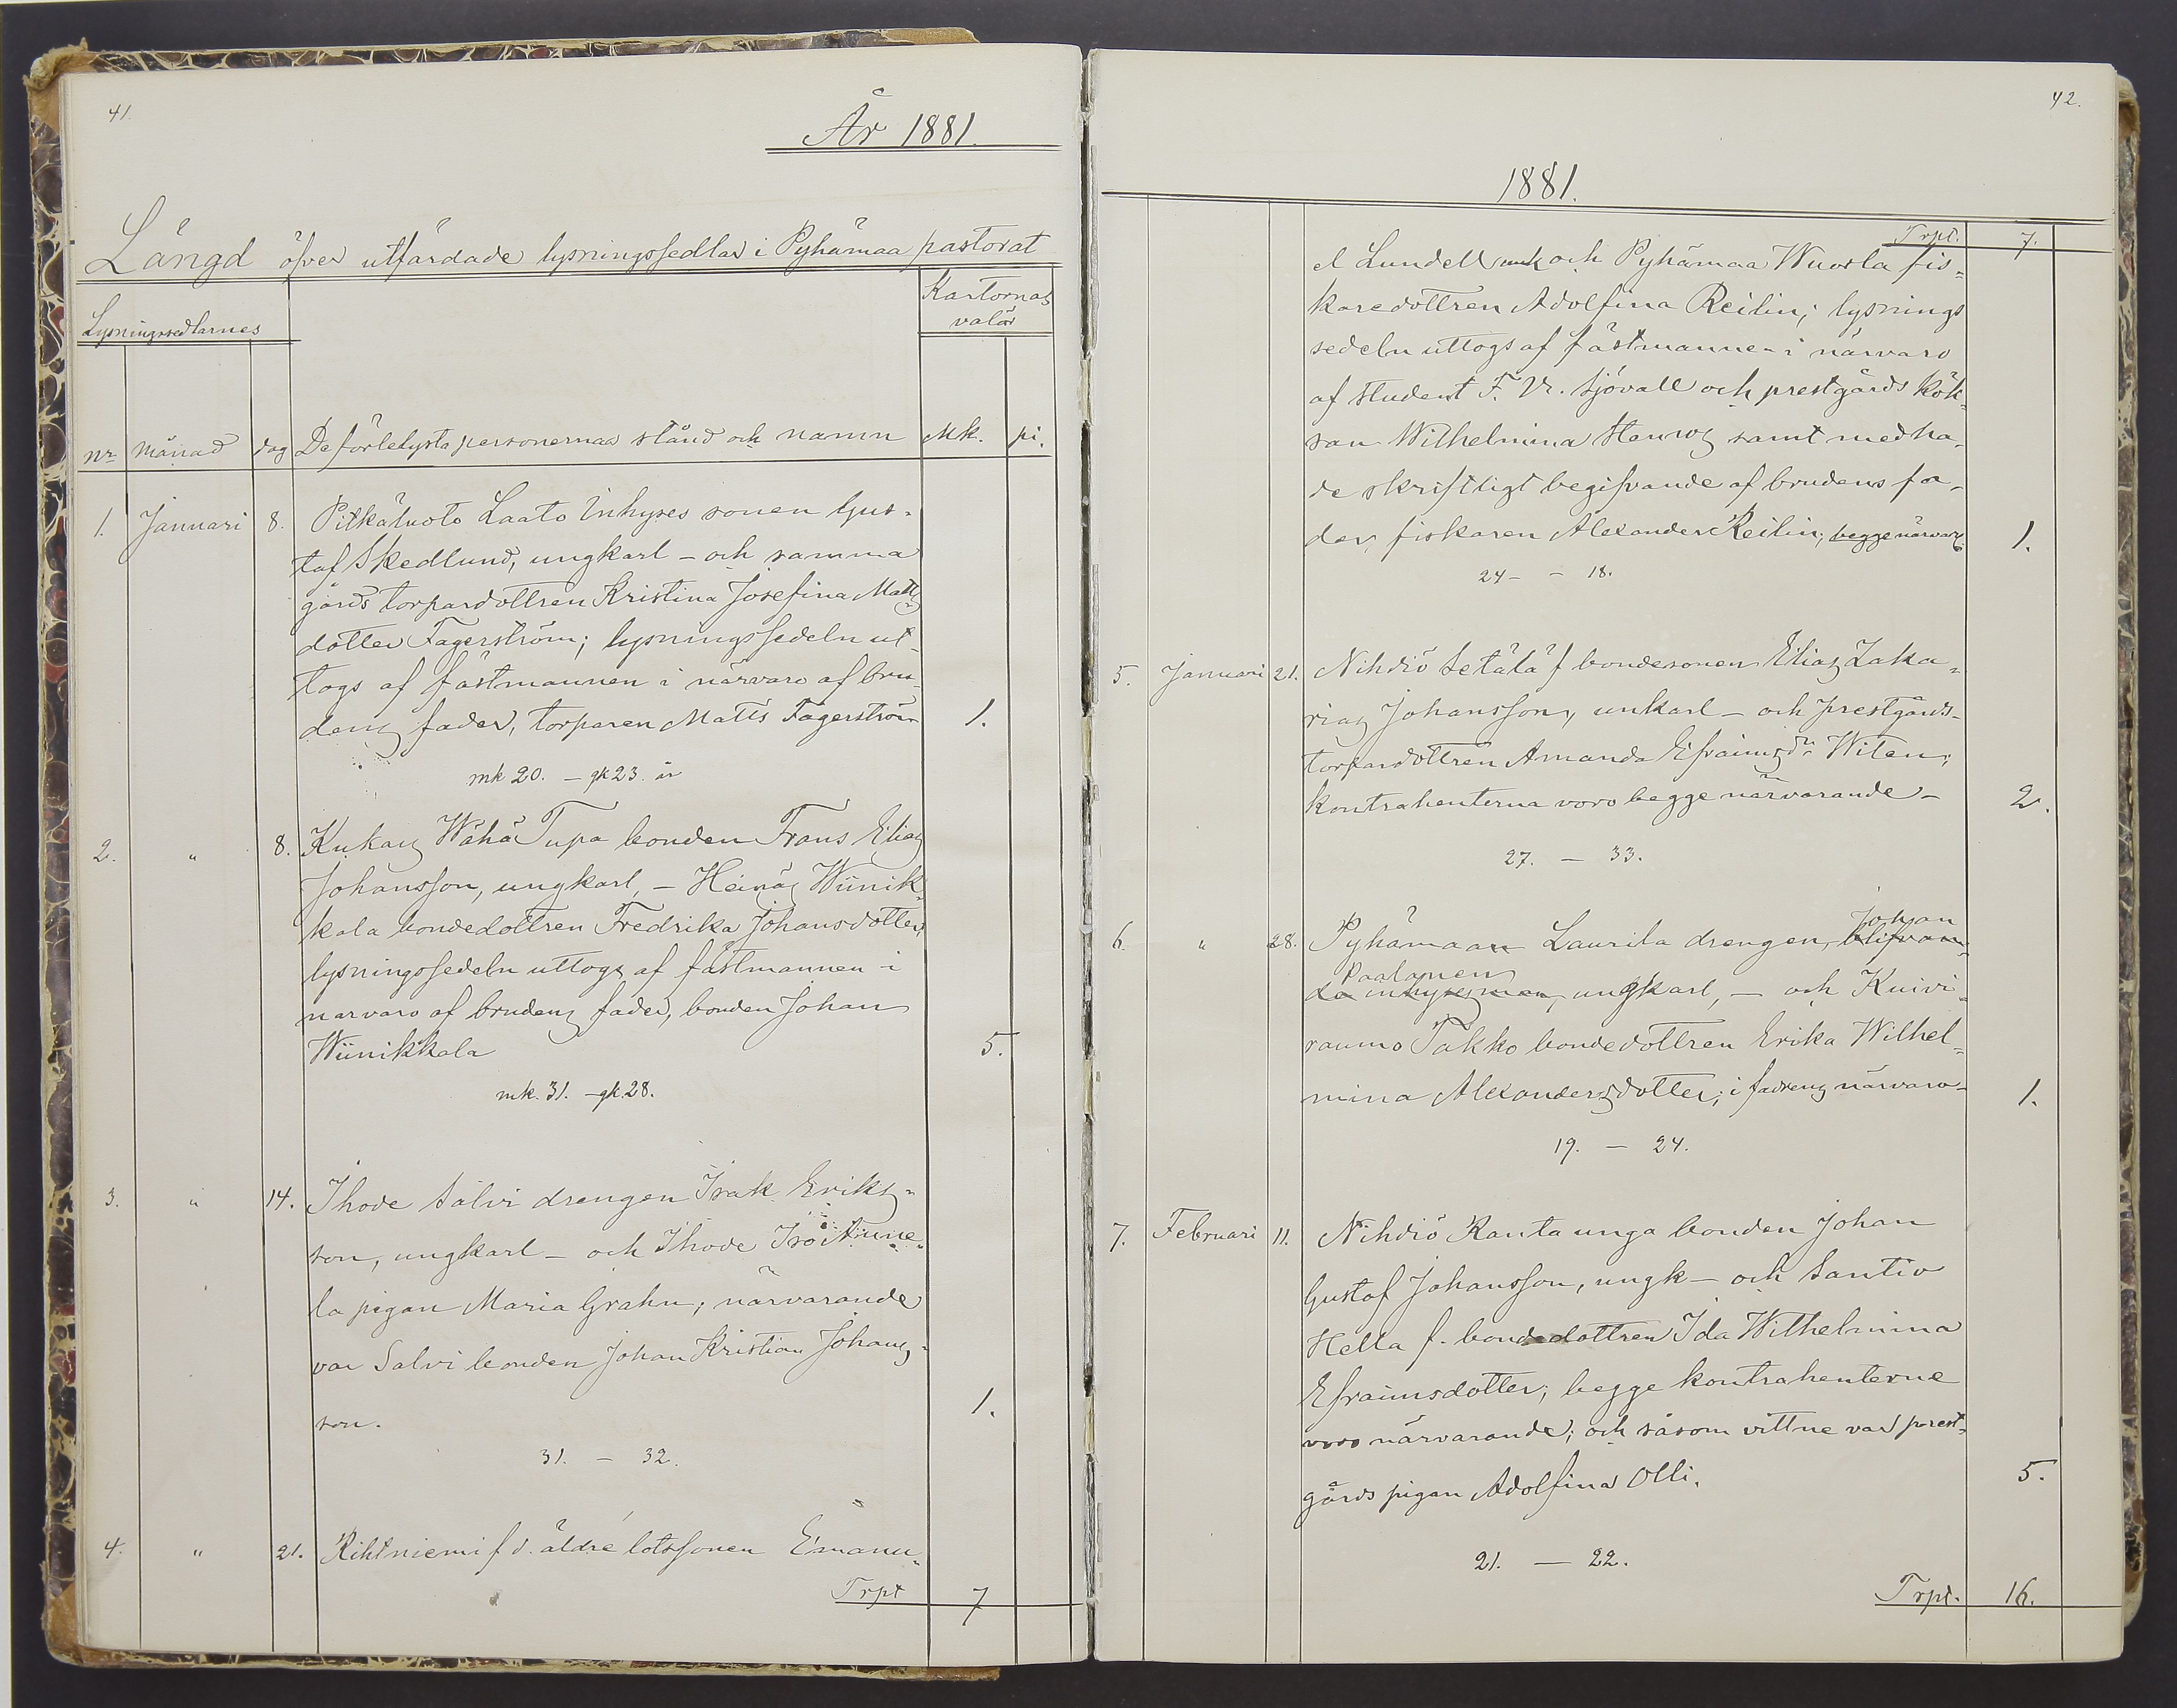 41.
År 1881.
Längd öfver utfärdade lysningssedlar i Pyhämaa pastorat
Lysningssedlarnes
Kartornas
valör
nr månad dag De förelysta personernas stånd och namn Mk. pi.
1. Januari 8. Pitkäluoto Laato Inhyses sonen Gus-
taf Skedlund, ungkarl - och samma
gårds torpardottren Kristina Josefina Matts
dotter Fagerström; lysningssedeln ut-
togs af fästmannen i närvaro af bru-
dens fader, torparen Matts Fagerström 1.
mk 20. - qk 23 år
2. " 8. Kukas Wähä Tupa bonden Frans Elias
Johansson, ungkarl, - Heinäs Wiinik-
kala bondedottren Fredrika Johansdotter,
lysningssedeln uttogs af fästmannen i
närvaro af brudens fader, bonden Johan
Wiinikkala 5.
mk. 31. - qk. 28.
3. " 14. Ihode Sälvi drengen Isak Eriks-
son, ungkarl - och Ihode
la pigan Maria Grahn; närvarande
var Salvi bonden Johan Kristian Johans-
son. 1.
31. - 32.
4. " 21. Rihtniemi f d. äldre lotssonen Emanu-
Trpt 7
42.
1881.
Trpt. 7.
el Lundell unk och Pyhämaa Wuorla fis-
karedottren Adolfina Reilin; lysnings
sedeln uttogs af fästmannen i närvaro
af student F. W. Sjövall och prestgårds kök-
san Wilhelmina Stenros samt medha-
de skriftligt begifvande af brudens fa-
der, fiskaren Alexander Reilin, begge närvar. 1.
24 - - 18.
5. Januari 21. Nihdiö Setälä f bondesonen Elias Zaka-
rias Johansson, unkarl - och prestgårds-
torpardottren Amanda Efraimsdr Witen;
kontrahenterna voro begge närvarande - 2.
27. - 33.
6. " 28. Pyhämaan Laurila drengen, Johan
Paalanen
da inhysesman, ungkarl, - och Kuivi-
raumo Takko bondedottren Erika Wilhel-
mina Alexandersdotter; i fadrens närvaro - 1.
19. - 24.
7. Februari 11. Nihdiö Ranta unga bonden Johan
Gustaf Johansson, ungk - och Santio
Hella f. bondedottren Ida Wilhelmina
Efraimsdotter; begge kontrahenterne
voro närvarande; och såsom vittne var prest-
gårds pigan Adolfina Olli. 5.
21. - 22.
Trpt. 16.